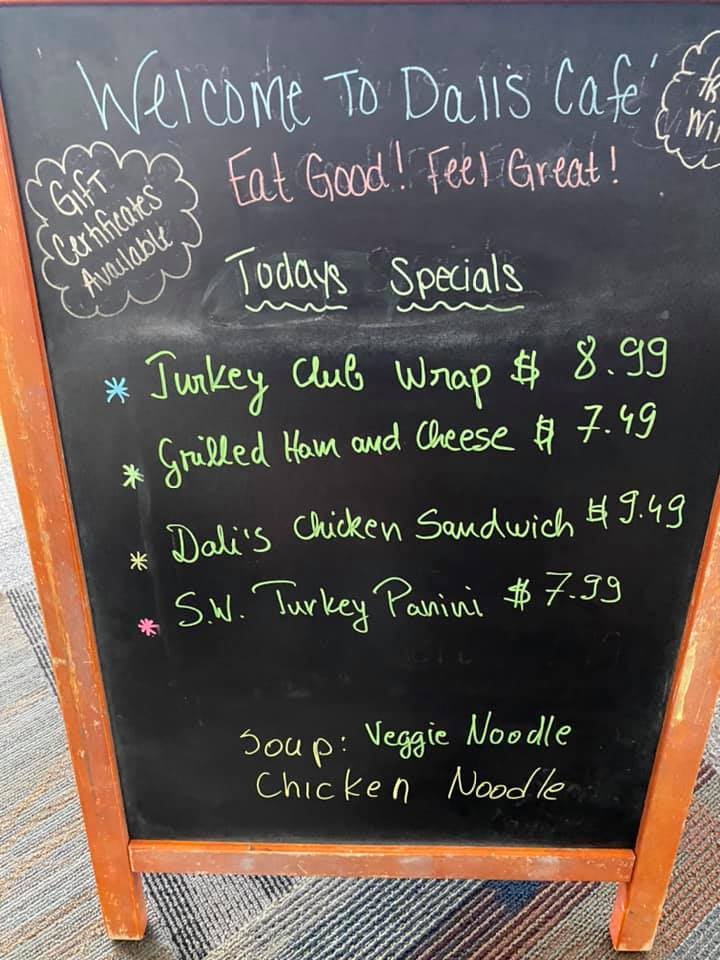 Welcome To Dali's Café
Eat Good! Feel Great!
Gift
Certificates
Available
Todays Specials
* Turkey Club Wrap $ 8.99
* Grilled Ham and Cheese $ 7.49
* Dali's Chicken Sandwich $ 9.49
* S.W. Turkey Panini $ 7.99
Soup: Veggie Noodle
Chicken Noodle